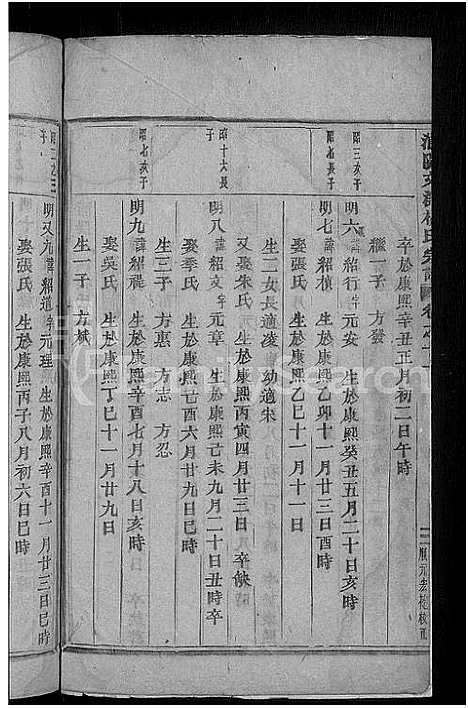 卒於康熙辛丑正月初二日午時
繼一子 方發
昭三次子
明六 諱紹行字元安 生於康熙癸丑五月二十日亥時
昭七長子
明七 諱紹楨 生於康熙乙卯十一月廿三日酉時
娶張氏 生於康熙乙巳十一月十一日
生二女長適凌 幼適宋
又娶朱氏 生於康熙丙寅四月廿三日 卒缺
昭十六長子
明八 諱紹文字元章 生於康熙己未九月二十日丑時卒
娶季氏 生於康熙乙酉六月廿九日巳時
生三子 方惠 方志 方忍
昭七次子
明九 諱紹禩 生於康熙辛酉七月十八日亥時
娶吳氏 生於康熙丁巳十一月廿九日
生一子 方斌
昭三之三子
明又九 諱紹道字元理 生於康熙辛酉十一月廿三日巳時
娶張氏 生於康熙丙子八月初六日巳時